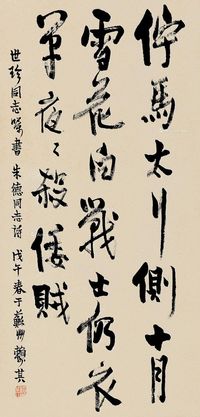 佇馬太行側十月
雪花白戰士仍衣
单夜〻殺倭賊
世珍同志嘱書 朱德同志詩 戊午春于蘇州